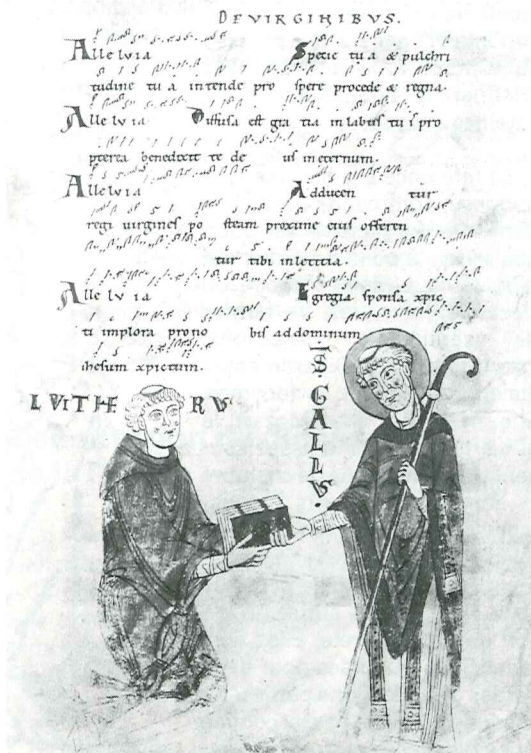 DE VIRGINIBVS.
Alleluia Specie tu a & pulchri
tudine tu a intende pro spere procede & regna.
Alle lv ia Diffusa est gra tia in labiis tu is pro
pterea benedixit te de us in eternum.
Alle lv ia Adducen tur
regi virgines po steam proxime eius offeren
tur tibi in letitia.
Alle lv ia Egregia sponsa xpic
ti implora pro no bis ad dominum
ihesum xpictum.
LVITHE RVS
·S·
GALLVS·